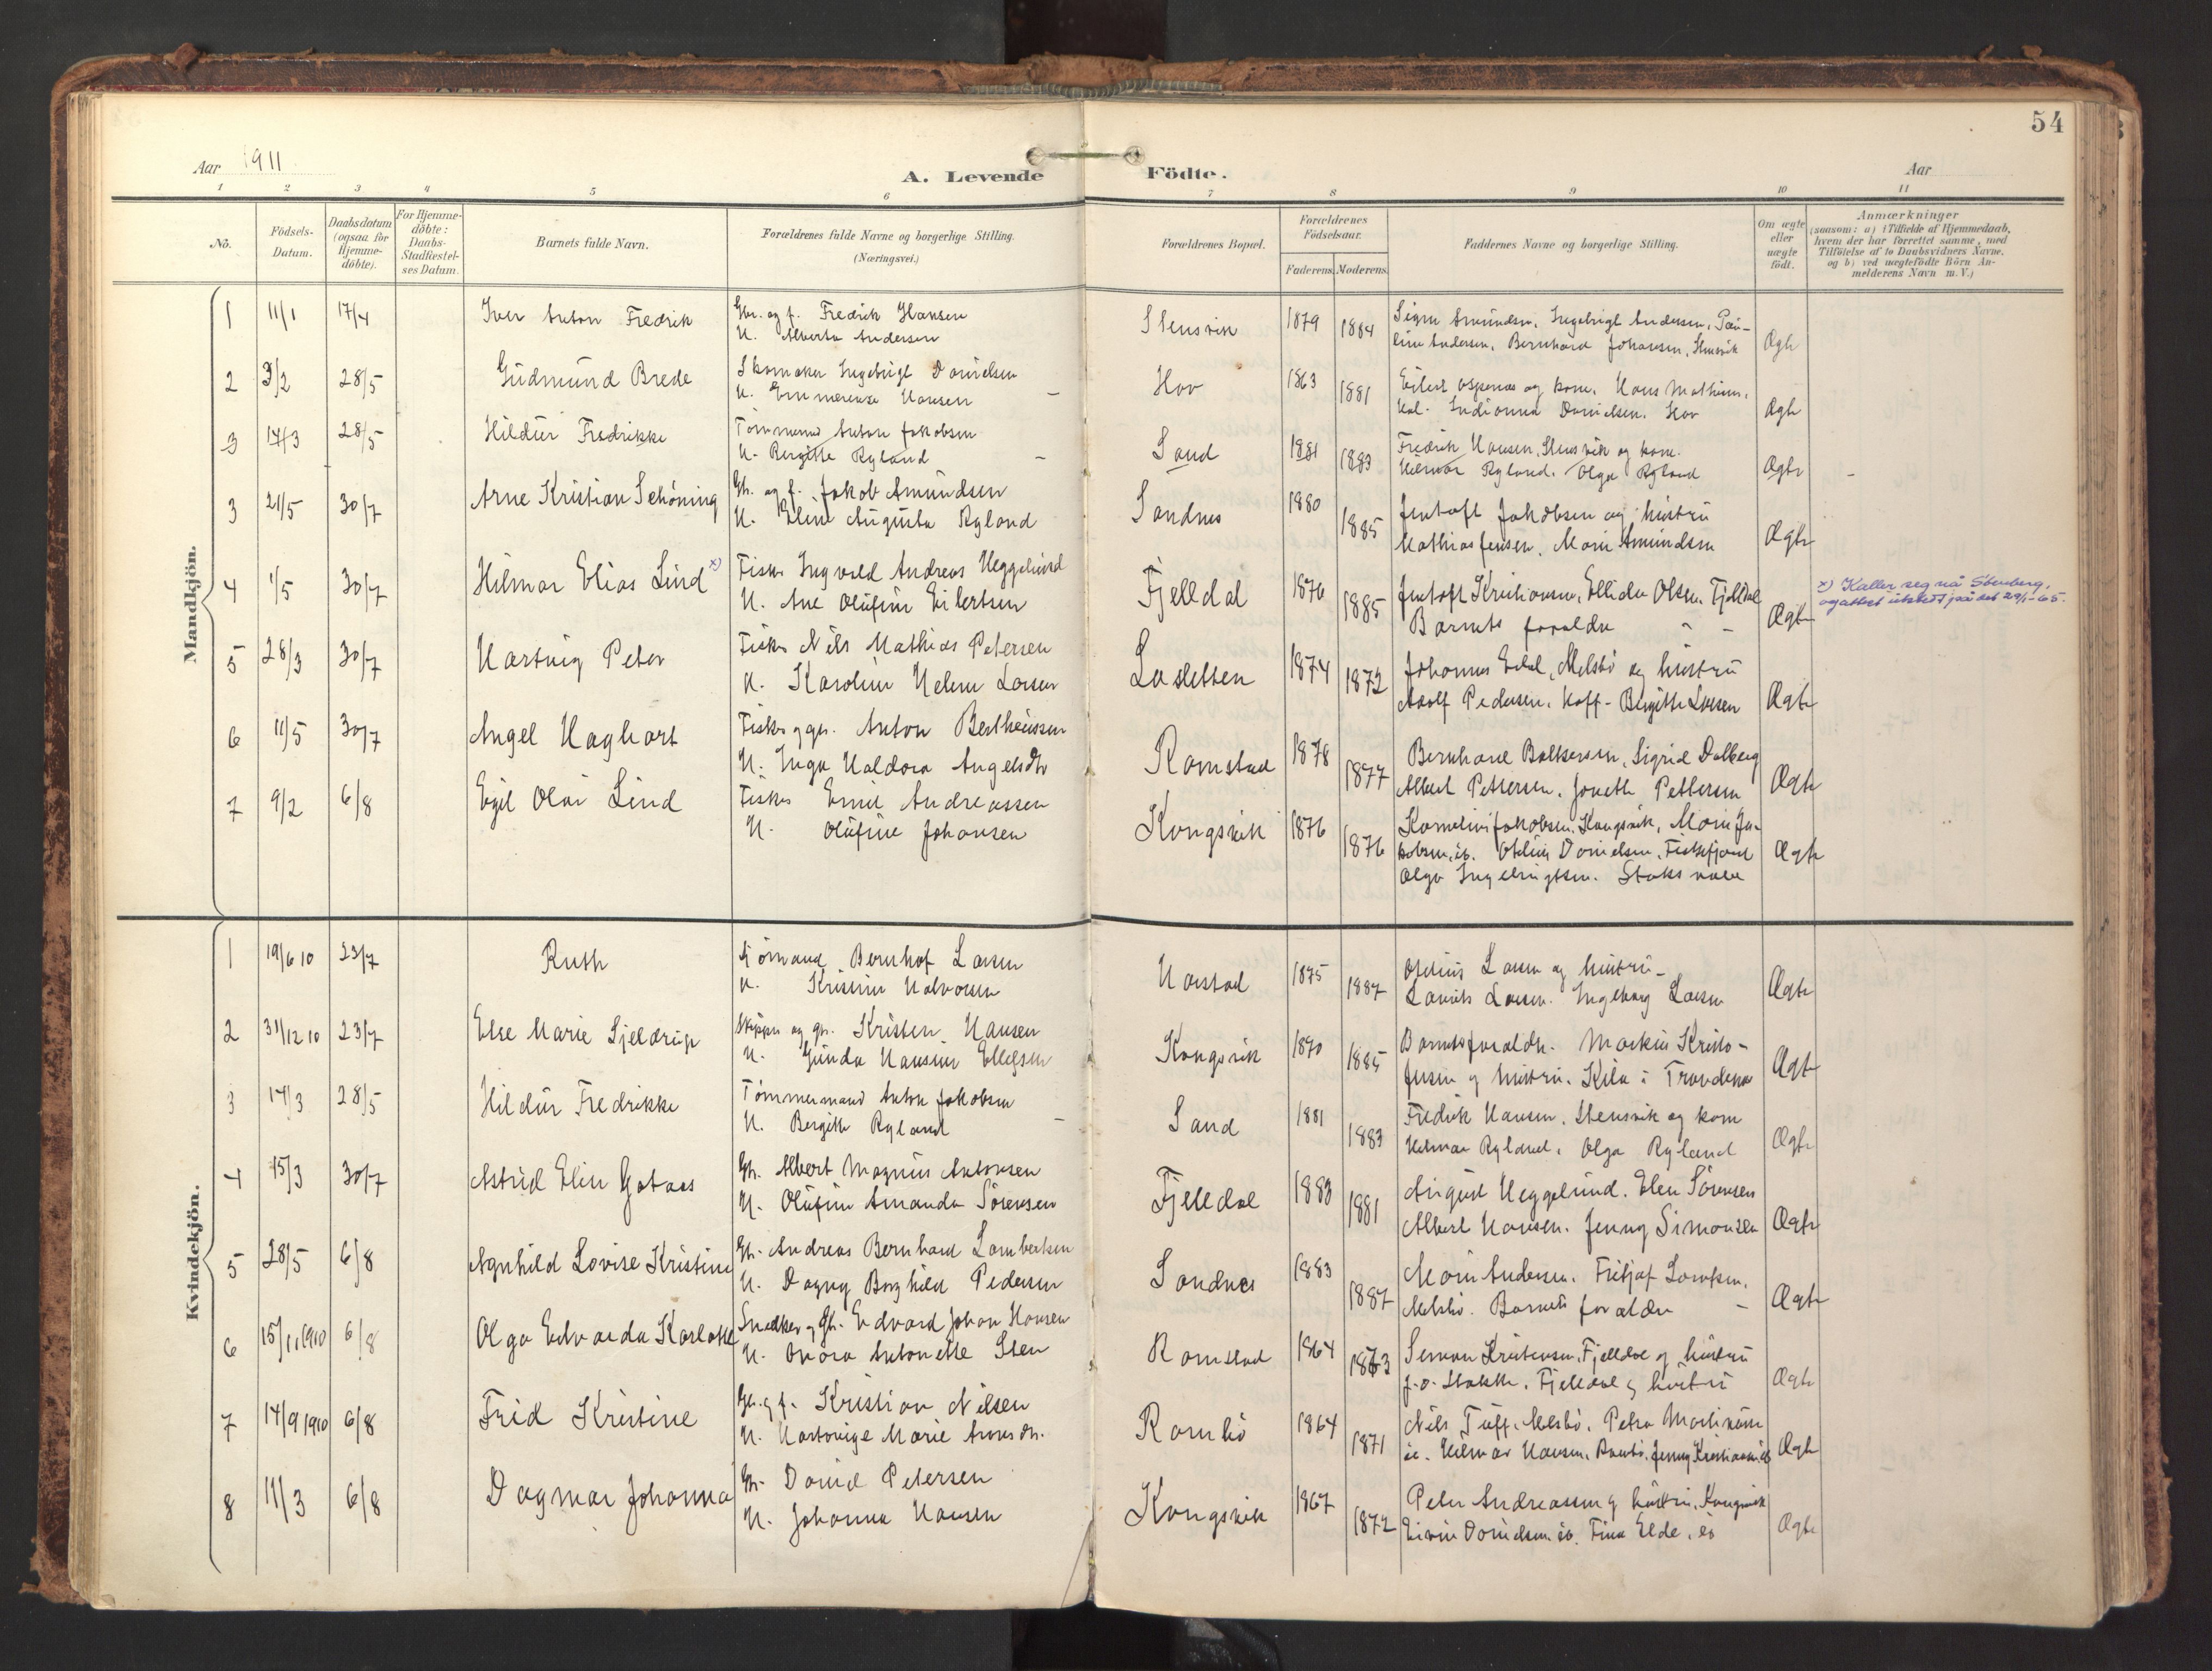 54
Aar 1911
A. Levende Födte.
Aar
1 2 3 4 5 6 7 8 9 10 11
No.
Födsels-
Datum.
Daabsdatum
(ogsaa for
Hjemme-
döbte).
For Hjemme-
döbte:
Daabs-
Stadfæstel-
ses Datum.
Barnets fulde Navn.
Forældrenes fulde Navne og borgerlige Stilling.
(Næringsvei.)
Forældrenes Bopæl.
Forældrenes
Födselsaar.
Faderens. Moderens.
Faddernes Navne og borgerlige Stilling.
Om ægte
eller
uægte
födt.
Anmærkninger
(saasom: a) i Tilfælde af Hjemmedaab,
hvem der har forrettet samme, med
Tilföielse af to Daabsvidners Navne,
og b) ved uægtefödte Börn An-
melderens Navn m. V.)
Mandkjön.
1 11/1 17/4 Iver Anton Fredrik Gbr. og f. Fredrik Hansen Stensvik 1879 1884 Signe Amundsen, Ingebrigt Andersen, Pau-
H. Alberta Andersen line Andersen, Bernhard Johansen, Stensvik Ægte
2 3/2 28/5 Gudmund Brede Skomaker Ingebrigt Danielsen Hov 1863 1881 Eilert Aspenes og kone, Hans Mathias,
H. Emmerense Hansen Indianna Danielsen, Hov Ægte
3 14/3 28/5 Hildur Fredrikke Tömmermand Anton Jakobsen Sand 1881 1883 Fredrik Hansen, Stensvik og kone.
H. Bergitte Ryland Hilmar Ryland. Olga Ryland Ægte
3 21/5 30/7 Arne Kristian Schöning Gb. og f. Jakob Amundsen Sandnes 1880 1885 Jentoft Jakobsen og hustru
H. Eline Augusta Ryland Mathias Jensen, Marie Amundsen Ægte
4 1/5 30/7 Hilmar Elias Lind x) Fisker Ingvald Andreas Heggelund Fjelldal 1876 1885 Jentoft Kristiansen, Ellida Olsen, Fjelldal
H. Ane Olufine Eilertsen Barnets forældre Ægte
x) Kaller seg nå Stenberg,
og attest utstedt på det 29/1-65.
5 28/3 30/7 Hartvig Peter Fisker Nils Mathias Petersen Lasletten 1874 1872 Johannes Eidal, Melsbö og hustru
H. Karoline Helene Larsen Adolf Pedersen, Hoff - Bergitte Larsen Ægte
6 11/5 30/7 Angel Haghart Fisker og gbr. Anton Bertheussen Ramstad 1878 1877 Bernhard Baltsersen, Sigrid Dalberg
H. Inga Haldora Angelsdtr Albert Pettersen, Jonette Pettersen Ægte
7 9/2 6/8 Egil Olai Lind Fisker Emil Andreassen Kongsvik 1876 1876 Kornelius Jakobsen, Kongsvik, Marie Ja-
H. Olufine Johansen kobsen, ib. Otelius Danielsen, Fiskefjord
Olga Ingebrigtsen. Staksvold Ægte
Kvindekjön.
1 19/6 10 23/7 Ruth Sjömand Bernhof Larsen Harstad 1875 1887 Otelius Larsen og hustru -
H. Kristine Halvorsen Laurits Larsen. Ingeborg Larsen Ægte
2 31/12 10 23/7 Else Marie Sjeldrup Skipper og gb. Kristen Hansen Kongsvik 1870 1885 Barnets forældre. Markus Kristo-
H. Gunda Hansine Ellefsen fersen og hustru. Kila i Trondenes Ægte
3 14/3 28/5 Hildur Fredrikke Tömmermand Anton Jakobsen Sand 1881 1883 Fredrik Hansen. Stensvik og kone
H. Bergitte Ryland Helmar Ryland, Olga Ryland Ægte
4 15/3 30/7 Astrid Elin Gotaas Gb. Albert Magnus Antonsen Fjelldal 1883 1881 August Heggelund. Elen Sörensen
H. Olufine Amanda Sörensen Albert Hansen. Jenny Simonsen Ægte
5 28/5 6/8 Agnhild Lovise Kristine Gb. Andreas Bernhard Lambertsen Sandnes 1883 1887 Marie Andersen. Fritjof Larsen.
H. Dagny Borghild Pedersen Melsbö. Barnets forældre Ægte
6 15/11 1910 6/8 Olga Edvarda Karlotte Snedker og Gb. Edvard Johan Hansen Ramstad 1864 1873 Simon Kristensen, Fjelldal og hustru
H. Onora Antonette Sten J. O. Slaktte, Fjelldal og hustru Ægte
7 14/9 1910 6/8 Frid Kristine Gb. og f. Kristian Nilsen Rambö 1864 1871 Nils Tuff, Melsbö. Petra Martinsen
H. Hartvige Marie Aronsdtr. ib. Hilmar Hansen, Rambö, Jenny Kristiansen, ib Ægte
8 11/3 6/8 Dagmar Johanna Gb. Daniel Petersen Kongsvik 1867 1872 Peter Andreassen og hustru, Kongsvik
H. Johanna Hansen Danielsen ib. Fina Elde, ib Ægte